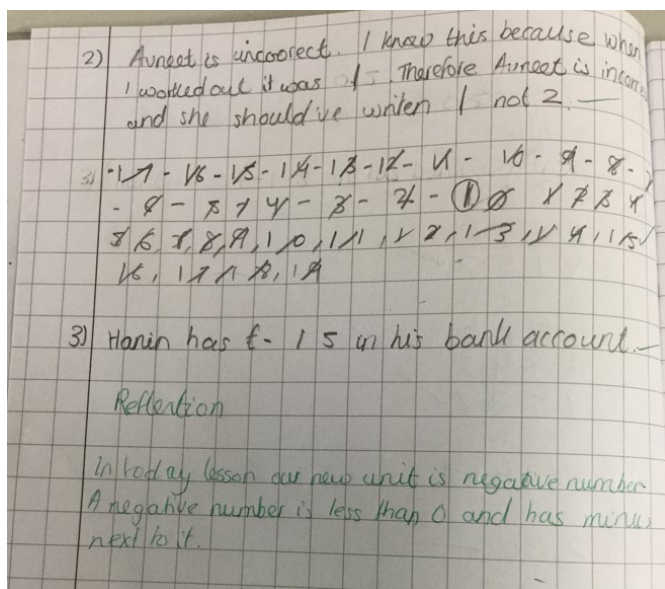 2) Avneet is incoorect. I know this because when
I worked out it was 1. Therefore Avneet is incorre
and she should've writen 1 not 2.
3) -17 - 16 - 15 - 14 - 13 - 12 - 11 - 10 - 9 - 8 -
- 3 - 2 - 1 0 1 2 3 4
5 6, 7, 8, 9, 10, 11, 12, 13, 14, 15
16, 17, 18, 19
3) Hanin has £-15 in his bank account.
Reflection
In today lesson our new unit is negative number
A negative number is less than 0 and has minus
next to it.